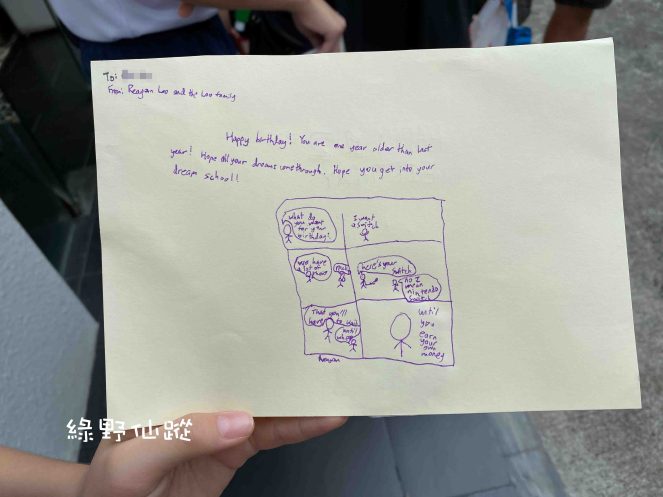 To:
From: Reagan Loo and the Loo family
Happy birthday! You are one year older than last
year! Hope all your dreams come through. Hope you get into your
dream school!
what do
you want
for your
birthday?
I want
a switch
we have
a lot of
those
here's your
switch
no I
mean
nintendo
switch
That you'll
have to wait
until
when
until
you
earn
your
own
money
Reagan
綠野仙蹤